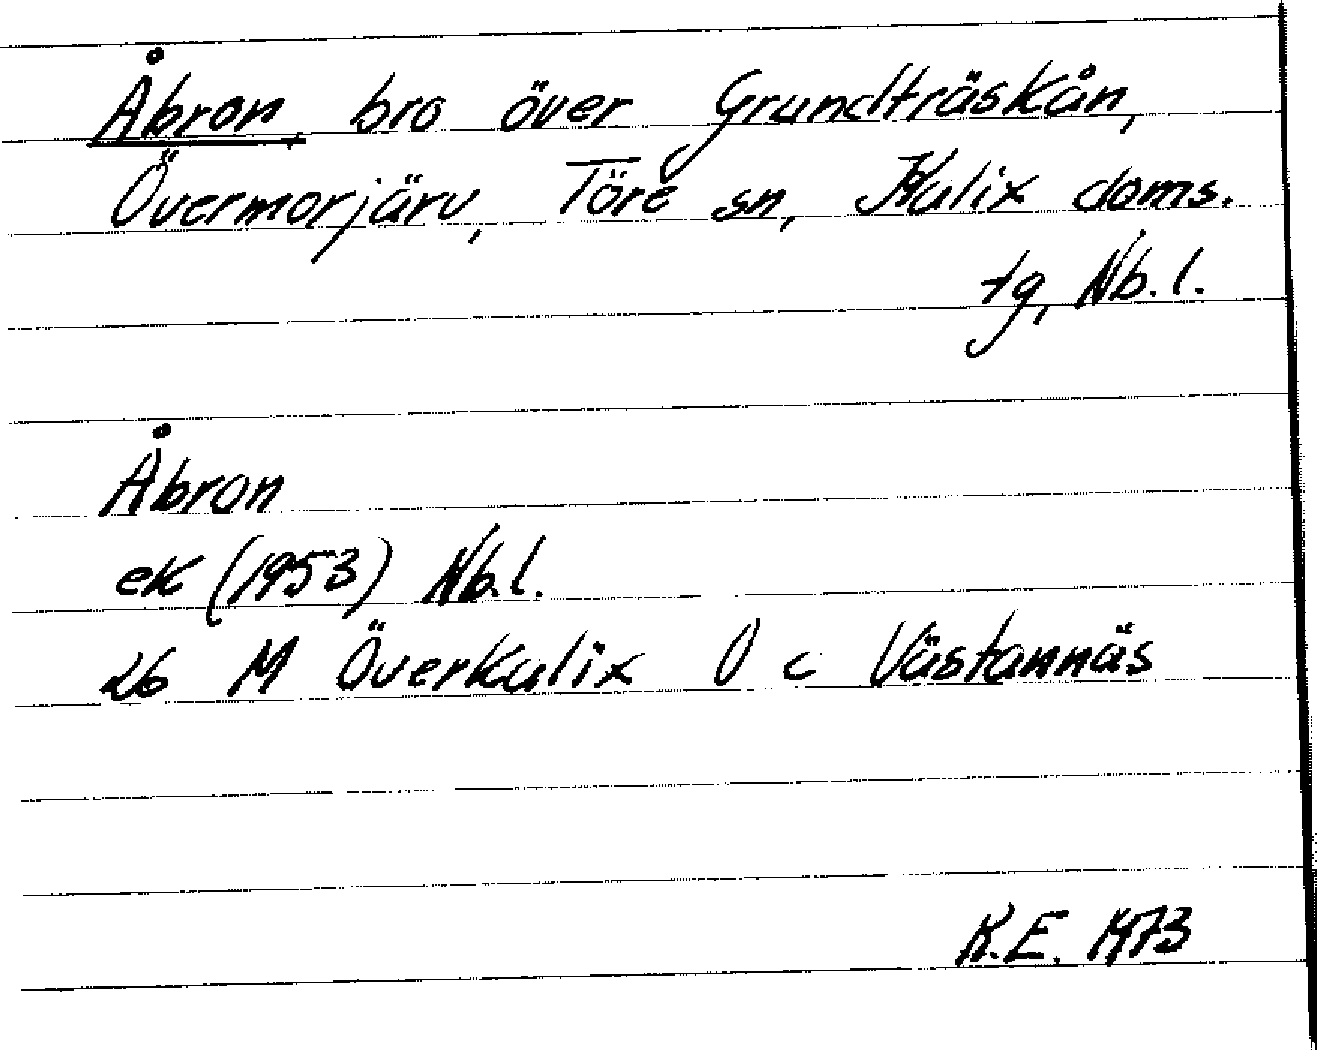 Åbron, bro över Grundträskån,
Övermorjärv, Töre sn, Kalix doms.
tg, Nb. l.
Åbron
ek (1953) Nb. l.
26 M Överkalix O c Västannäs
K.E. 1973